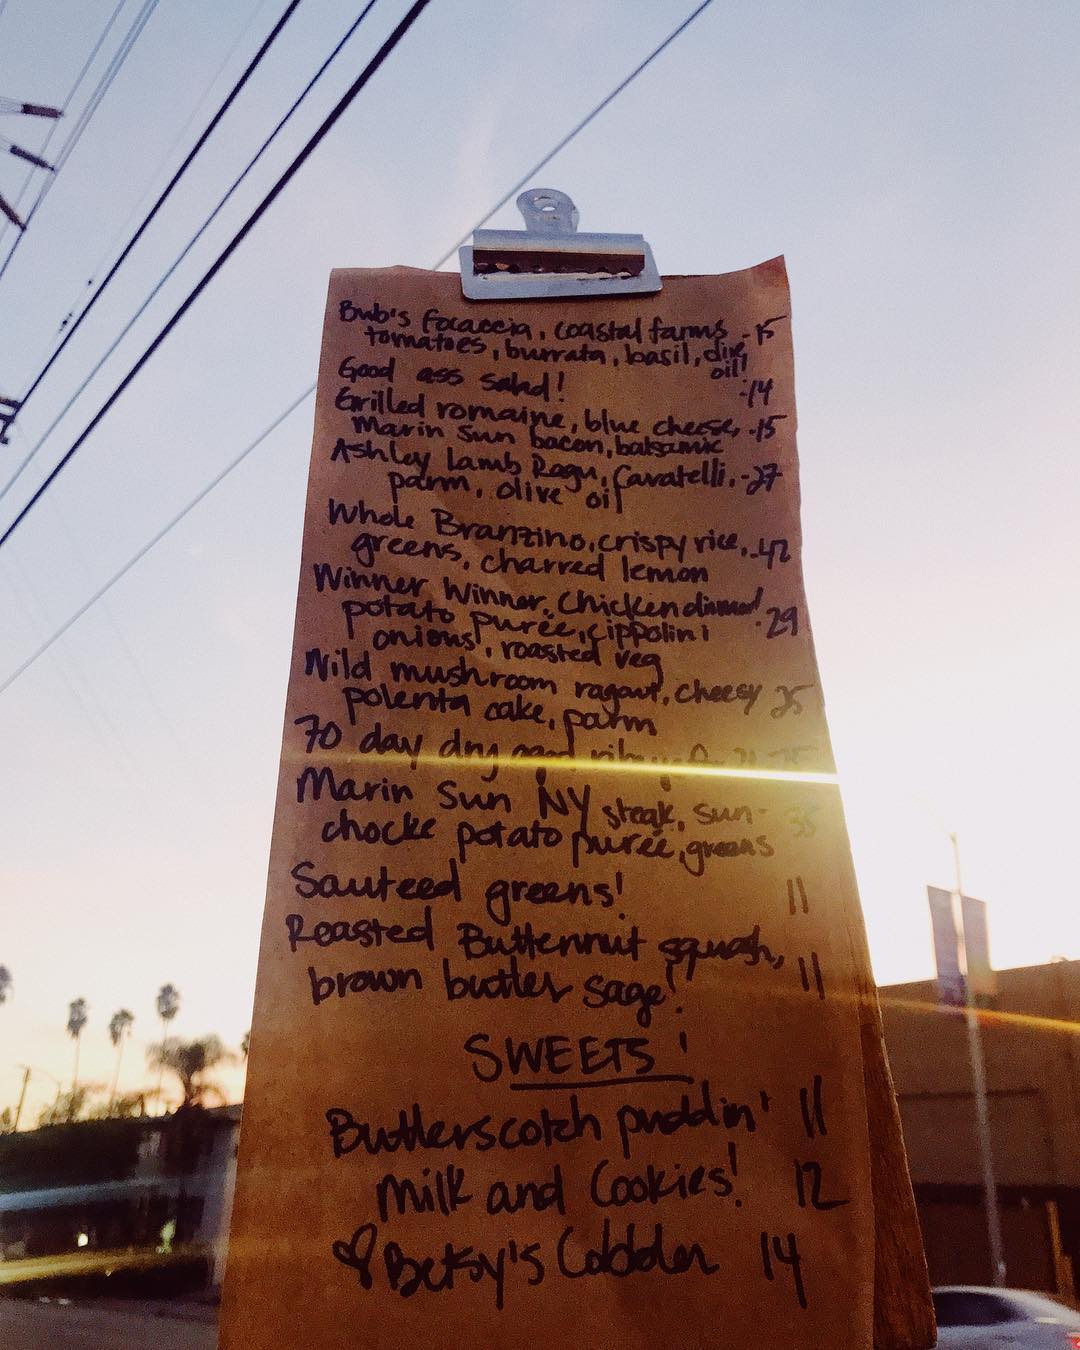 Bub's focaccia, coastal farms -15
tomatoes, burrata, basil, olive
oil!
Good ass salad! -14
Grilled romaine, blue cheese, -15
Marin Sun bacon, balsamic
Ashley Lamb Ragu, Cavatelli, -27
parm, olive oil
Whole Branzino, crispy rice, -42
greens, charred lemon
Winner Winner, Chicken dinner!
potato purée, cippolini 29
onions, roasted veg
Wild mushroom ragout, cheesy 25
polenta cake, parm
70 day dry aged ribeye
Marin Sun NY steak, sun- 35
chocke potato purée, greens
Sauteed greens! 11
Roasted Butternut squash,
brown butter sage! 11
SWEETS!
Butterscotch puddin' 11
Milk and Cookies! 12
Betsy's Cobbler 14